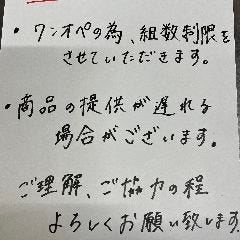 ・ワンオペの為、組数制限を
させていただきます。
・商品の提供が遅れる
場合がございます。
ご理解、ご協力の程
よろしくお願い致します